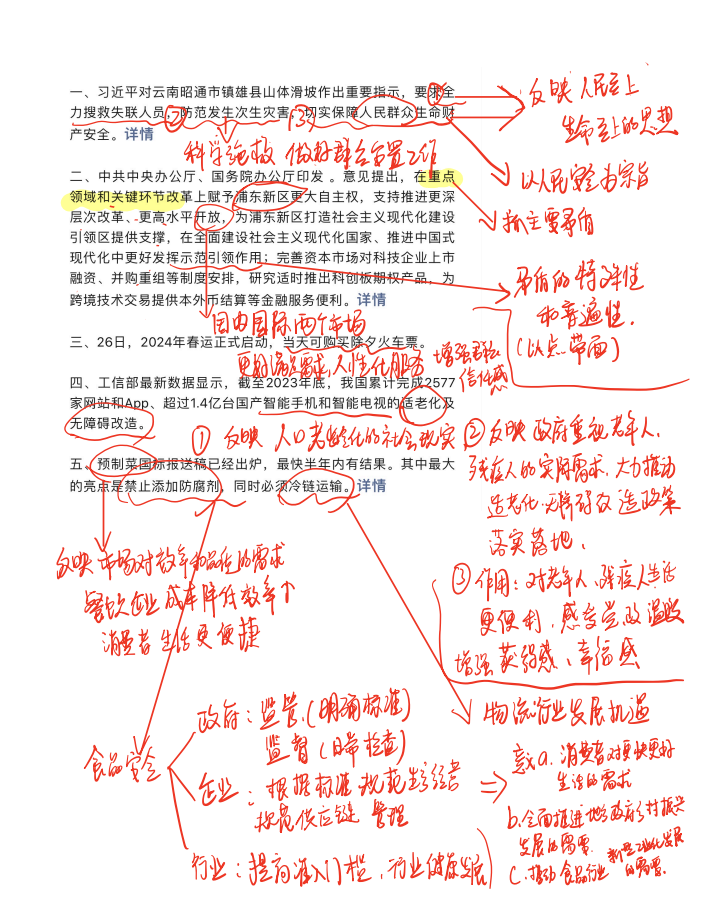 一、习近平对云南昭通市镇雄县山体滑坡作出重要指示，要求全
力搜救失联人员，防范发生次生灾害，切实保障人民群众生命财
产安全。详情
① ② ③
反映 人民至上
生命至上的思想
科学施救 做好群众安置工作
以人民安全为宗旨
二、中共中央办公厅、国务院办公厅印发 。意见提出，在重点
领域和关键环节改革上赋予浦东新区更大自主权，支持推进更深
层次改革、更高水平开放，为浦东新区打造社会主义现代化建设
引领区提供支撑，在全面建设社会主义现代化国家、推进中国式
现代化中更好发挥示范引领作用；完善资本市场对科技企业上市
融资、并购重组等制度安排，研究适时推出科创板期权产品，为
跨境技术交易提供本外币结算等金融服务便利。详情
抓主要矛盾
矛盾的特殊性
和普遍性.
(以点带面)
国内国际两个市场
三、26日，2024年春运正式启动，当天可购买除夕火车票。
更好满足需求,人性化服务
增强群众
信任感
四、工信部最新数据显示，截至2023年底，我国累计完成2577
家网站和App、超过1.4亿台国产智能手机和智能电视的适老化及
无障碍改造。
① 反映 人口老龄化的社会现实
② 反映 政府重视老年人、
残疾人的实际需求.大力推动
适老化.无障碍改造政策
落实落地.
③ 作用：对老年人、残疾人生活
更便利.感受党政温暖
增强获得感、幸福感
五、预制菜国标报送稿已经出炉，最快半年内有结果。其中最大
的亮点是禁止添加防腐剂，同时必须冷链运输。详情
反映市场对效率和品质的需求
餐饮企业 成本降低 效率↑
消费者 生活更便捷
物流行业发展机遇
食品安全
政府：监管.(明确标准)
监督(日常检查)
企业：根据标准 规范生产经营
规范供应链 管理
行业：提高准入门槛，行业健康发展
意义a.消费者对更快更好
生活的需求
b.全面推进地方政府乡村振兴
发展的需要.
c.推动食品行业新型工业化发展
的需要.